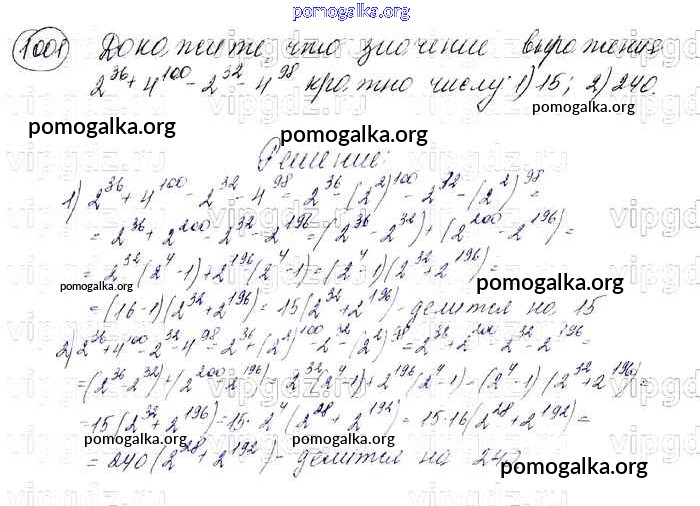 pomogalka.org
1001 Докажите, что значение выражения
2^36 + 4^100 - 2^32 - 4^98 кратно числу: 1) 15; 2) 240.
pomogalka.org
pomogalka.org
Решение:
1) 2^36 + 4^100 - 2^32 - 4^98 = 2^36 - (2^2)^100 - 2^32 - (2^2)^98 =
= 2^36 + 2^200 - 2^32 - 2^196 = (2^36 - 2^32) + (2^200 - 2^196) =
= 2^32 (2^4 - 1) + 2^196 (2^4 - 1) = (2^4 - 1)(2^32 + 2^196) =
pomogalka.org
pomogalka.org
= (16 - 1)(2^32 + 2^196) = 15 (2^32 + 2^196) - делится на 15
2) 2^36 + 4^100 - 2^32 - 4^98 = 2^36 + (2^2)^100 - 2^32 - (2^2)^98 = 2^36 + 2^200 - 2^32 - 2^196 =
= (2^36 - 2^32) + (2^200 - 2^196) = 2^32 (2^4 - 1) + 2^196 (2^4 - 1) = (2^4 - 1)(2^32 + 2^196) =
= 15 (2^32 + 2^196) = 15 · 2^4 (2^28 + 2^192) = 15 · 16 (2^28 + 2^192) =
pomogalka.org
pomogalka.org
= 240 (2^28 + 2^192) - делится на 240
pomogalka.org